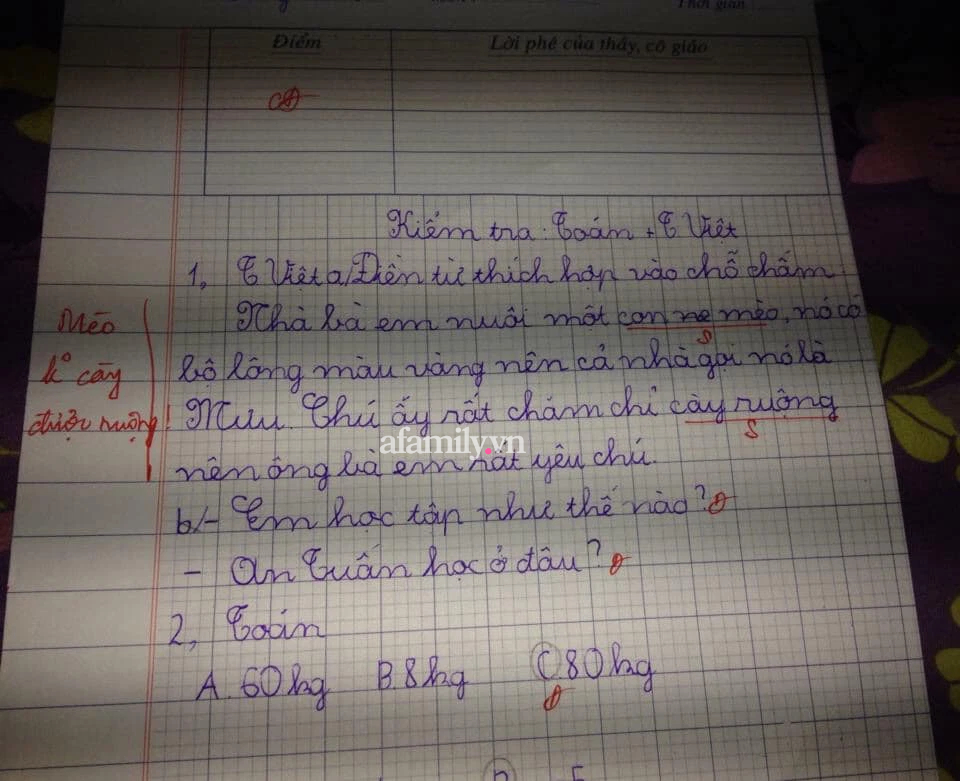 Thời gian
Điểm
Lời phê của thầy, cô giáo
Kiểm tra: Toán + T Việt
1, T Việt a/ Điền từ thích hợp vào chỗ chấm
Nhà bà em nuôi một con nẹ mèo, nó có
bộ lông màu vàng nên cả nhà gọi nó là
Mưu. Chú ấy rất chăm chỉ cày ruộng
nên ông bà em rất yêu chú.
Mèo
k° cày
được ruộng!
S
S
afamily.vn
b/- Em học tập như thế nào? Đ
- Anh Tuấn học ở đâu? Đ
2, Toán
A. 60kg B. 8kg C. 80kg
Đ